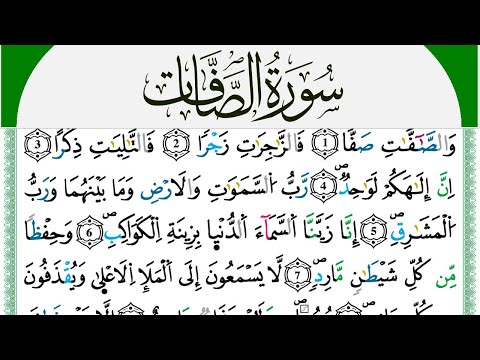 سُورَةُ الصَّافَّات
وَالصّٰٓفّٰتِ صَفًّا ۝1 فَالزّٰجِرٰتِ زَجْرًا ۝2 فَالتّٰلِيٰتِ ذِكْرًا ۝3
اِنَّ اِلٰهَكُمْ لَوَاحِدٌ ۝4 رَبُّ السَّمٰوٰتِ وَالْاَرْضِ وَمَا بَيْنَهُمَا وَرَبُّ
الْمَشَارِقِ ۝5 اِنَّا زَيَّنَّا السَّمَآءَ الدُّنْيَا بِزِيْنَةِ ࣙالْكَوَاكِبِ ۝6 وَحِفْظًا
مِّنْ كُلِّ شَيْطٰنٍ مَّارِدٍ ۝7 لَّا يَسَّمَّعُوْنَ اِلَى الْمَلَاِ الْاَعْلٰى وَيُقْذَفُوْنَ